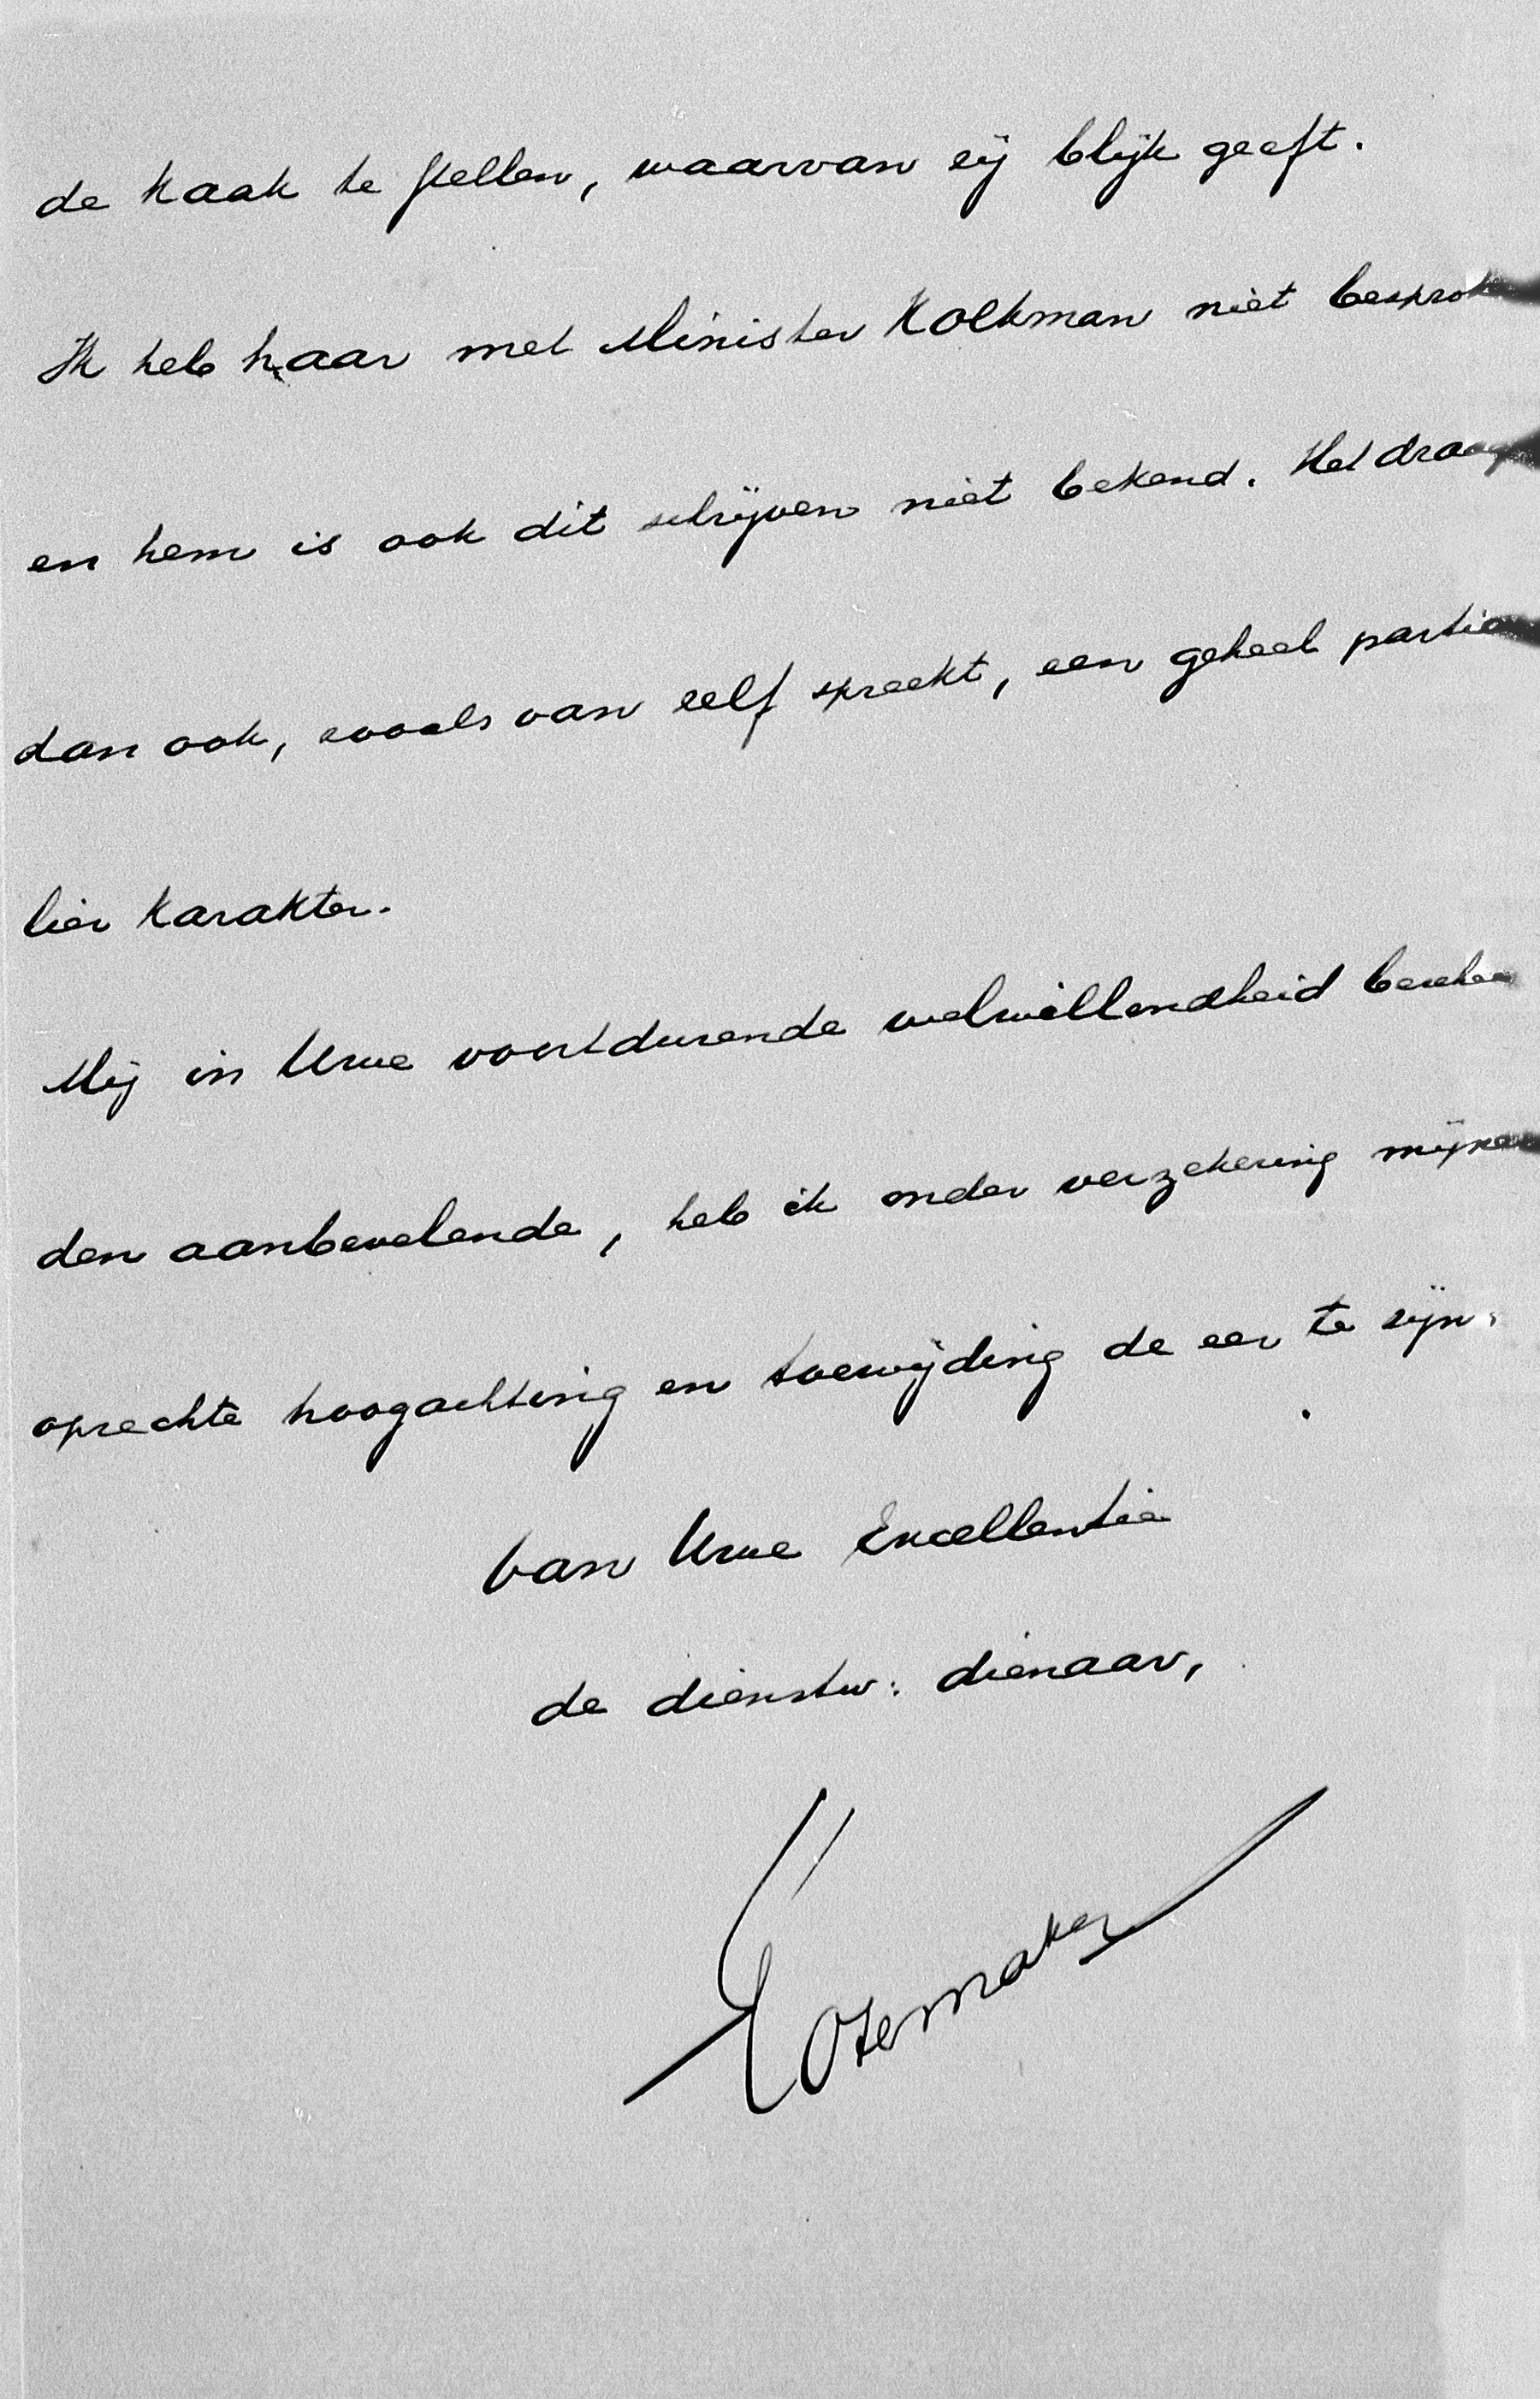 de kaak te stellen, waarvan zij blijk geeft.
Ik heb haar met Minister Kolkman niet besprok
en hem is ook dit schrijven niet bekend. Het draag
dan ook, zooals van zelf spreekt, een geheel particu
lier karakter.
Mij in Uwe voortdurende welwillendheid
den aanbevelende, heb ik onder verzekering mijner
oprechte hoogachting en toewijding de eer te zijn,
van Uwe Excellentie
de dienstw: dienaar,